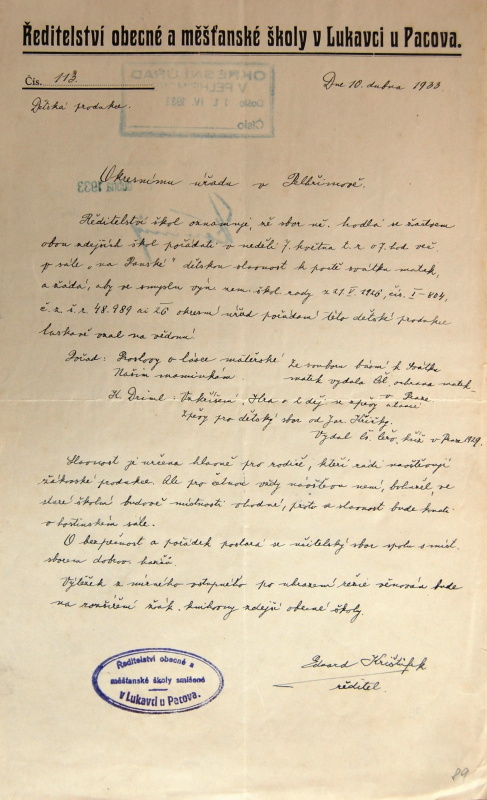 Ředitelství obecné a měšťanské školy v Lukavci u Pacova.
Čís. 113.
Dne 10. dubna 1933.
Dětská produkce.
OKRESNÍ ÚŘAD
V PELHŘIMOVĚ
Došlo 11. IV. 1933
Číslo
Okresnímu úřadu v Pelhřimově.
Ředitelství škol oznamuje, že sbor uč. hodlá se žactvem
obou zdejších škol pořádati v neděli 7. května t. r. o 7. hod. več.
v sále „na Panské" dětskou slavnost k poctě svátku matek,
a žádá, aby ve smyslu výn. zem. škol. rady z 21/V. 1926, čís. I-804,
č. z. š. r. 48.989 ai 26 okresní úřad pořádání této dětské produkce
laskavě vzal na vědomí.
Pořad: Proslovy o lásce mateřské
Našim maminkám
Ze souboru básní k Svátku
matek vydala Čsl. ochrana matek
v Praze
K. Driml: Vzkříšení, Hra o 1 děj. se zpěvy a tanci
Zpěvy pro dětský sbor od Jar. Křičky.
Vydal Čs. červ. kříž v Praze 1929.
Slavnost je určena hlavně pro rodiče, kteří rádi navštěvují
žákovské produkce. Ale pro četnou vždy návštěvu není, bohužel, ve
staré školní budově místnosti vhodné, proto a slavnost bude konati
v hostinském sále.
O bezpečnost a pořádek postará se učitelský sbor spolu s míst.
sborem dobrov. hasičů.
Výtěžek z mírného vstupného po uhrazení režie věnován bude
na rozšíření žák. knihovny zdejší obecné školy.
Ředitelství obecné a
měšťanské školy smíšené
v Lukavci u Pacova.
Eduard Krištůfek
ředitel.
89